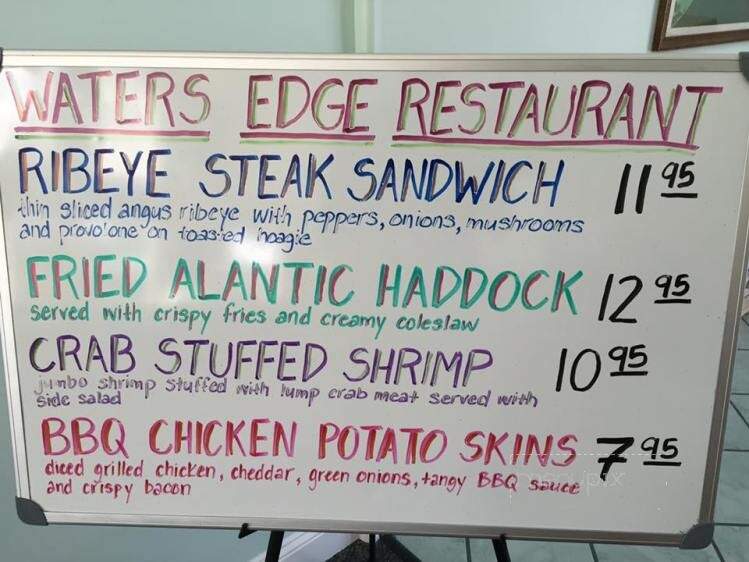 WATERS EDGE RESTAURANT
RIBEYE STEAK SANDWICH 11 95
thin sliced angus ribeye with peppers, onions, mushrooms
and provolone on toasted hoagie
FRIED ALANTIC HADDOCK 12 95
served with crispy fries and creamy coleslaw
CRAB STUFFED SHRIMP 10 95
jumbo shrimp stuffed with lump crab meat served with
side salad
BBQ CHICKEN POTATO SKINS 7 95
diced grilled chicken, cheddar, green onions, tangy BBQ sauce
and crispy bacon